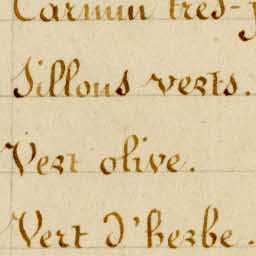 Carmin très-
Sillons verts.
Vert olive.
Vert d'herbe.